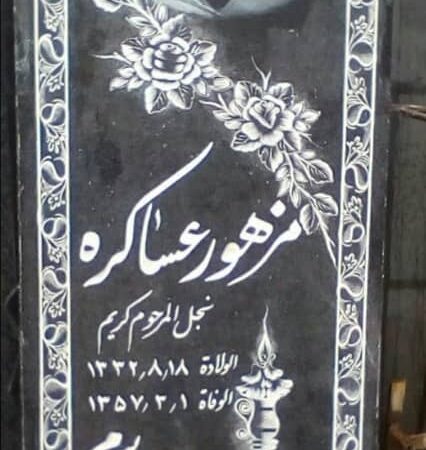 مزهور عساكره
نجل المرحوم كريم
الولادة ۱۳۳۲٫۸٫۱۸
الوفاة ۱۳۵۷٫۳٫۱